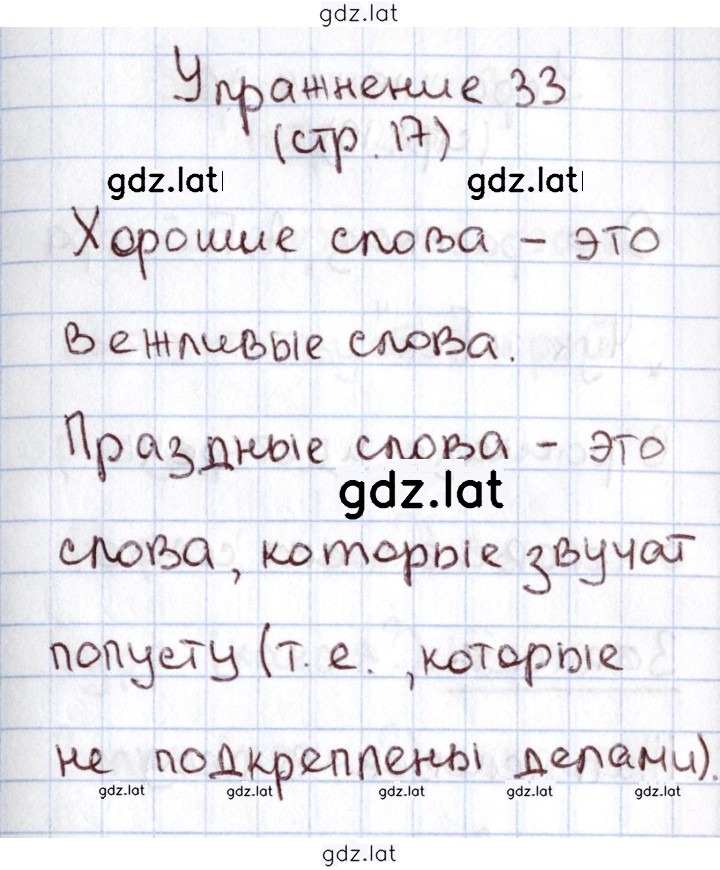 gdz.lat
Упражнение 33
(стр. 17)
gdz.lat gdz.lat
Хорошие слова - это
вежливые слова.
Праздные слова - это
gdz.lat
слова, которые звучат
попусту (т. е. , которые
не подкреплены делами).
gdz.lat gdz.lat gdz.lat gdz.lat gdz.lat
gdz.lat